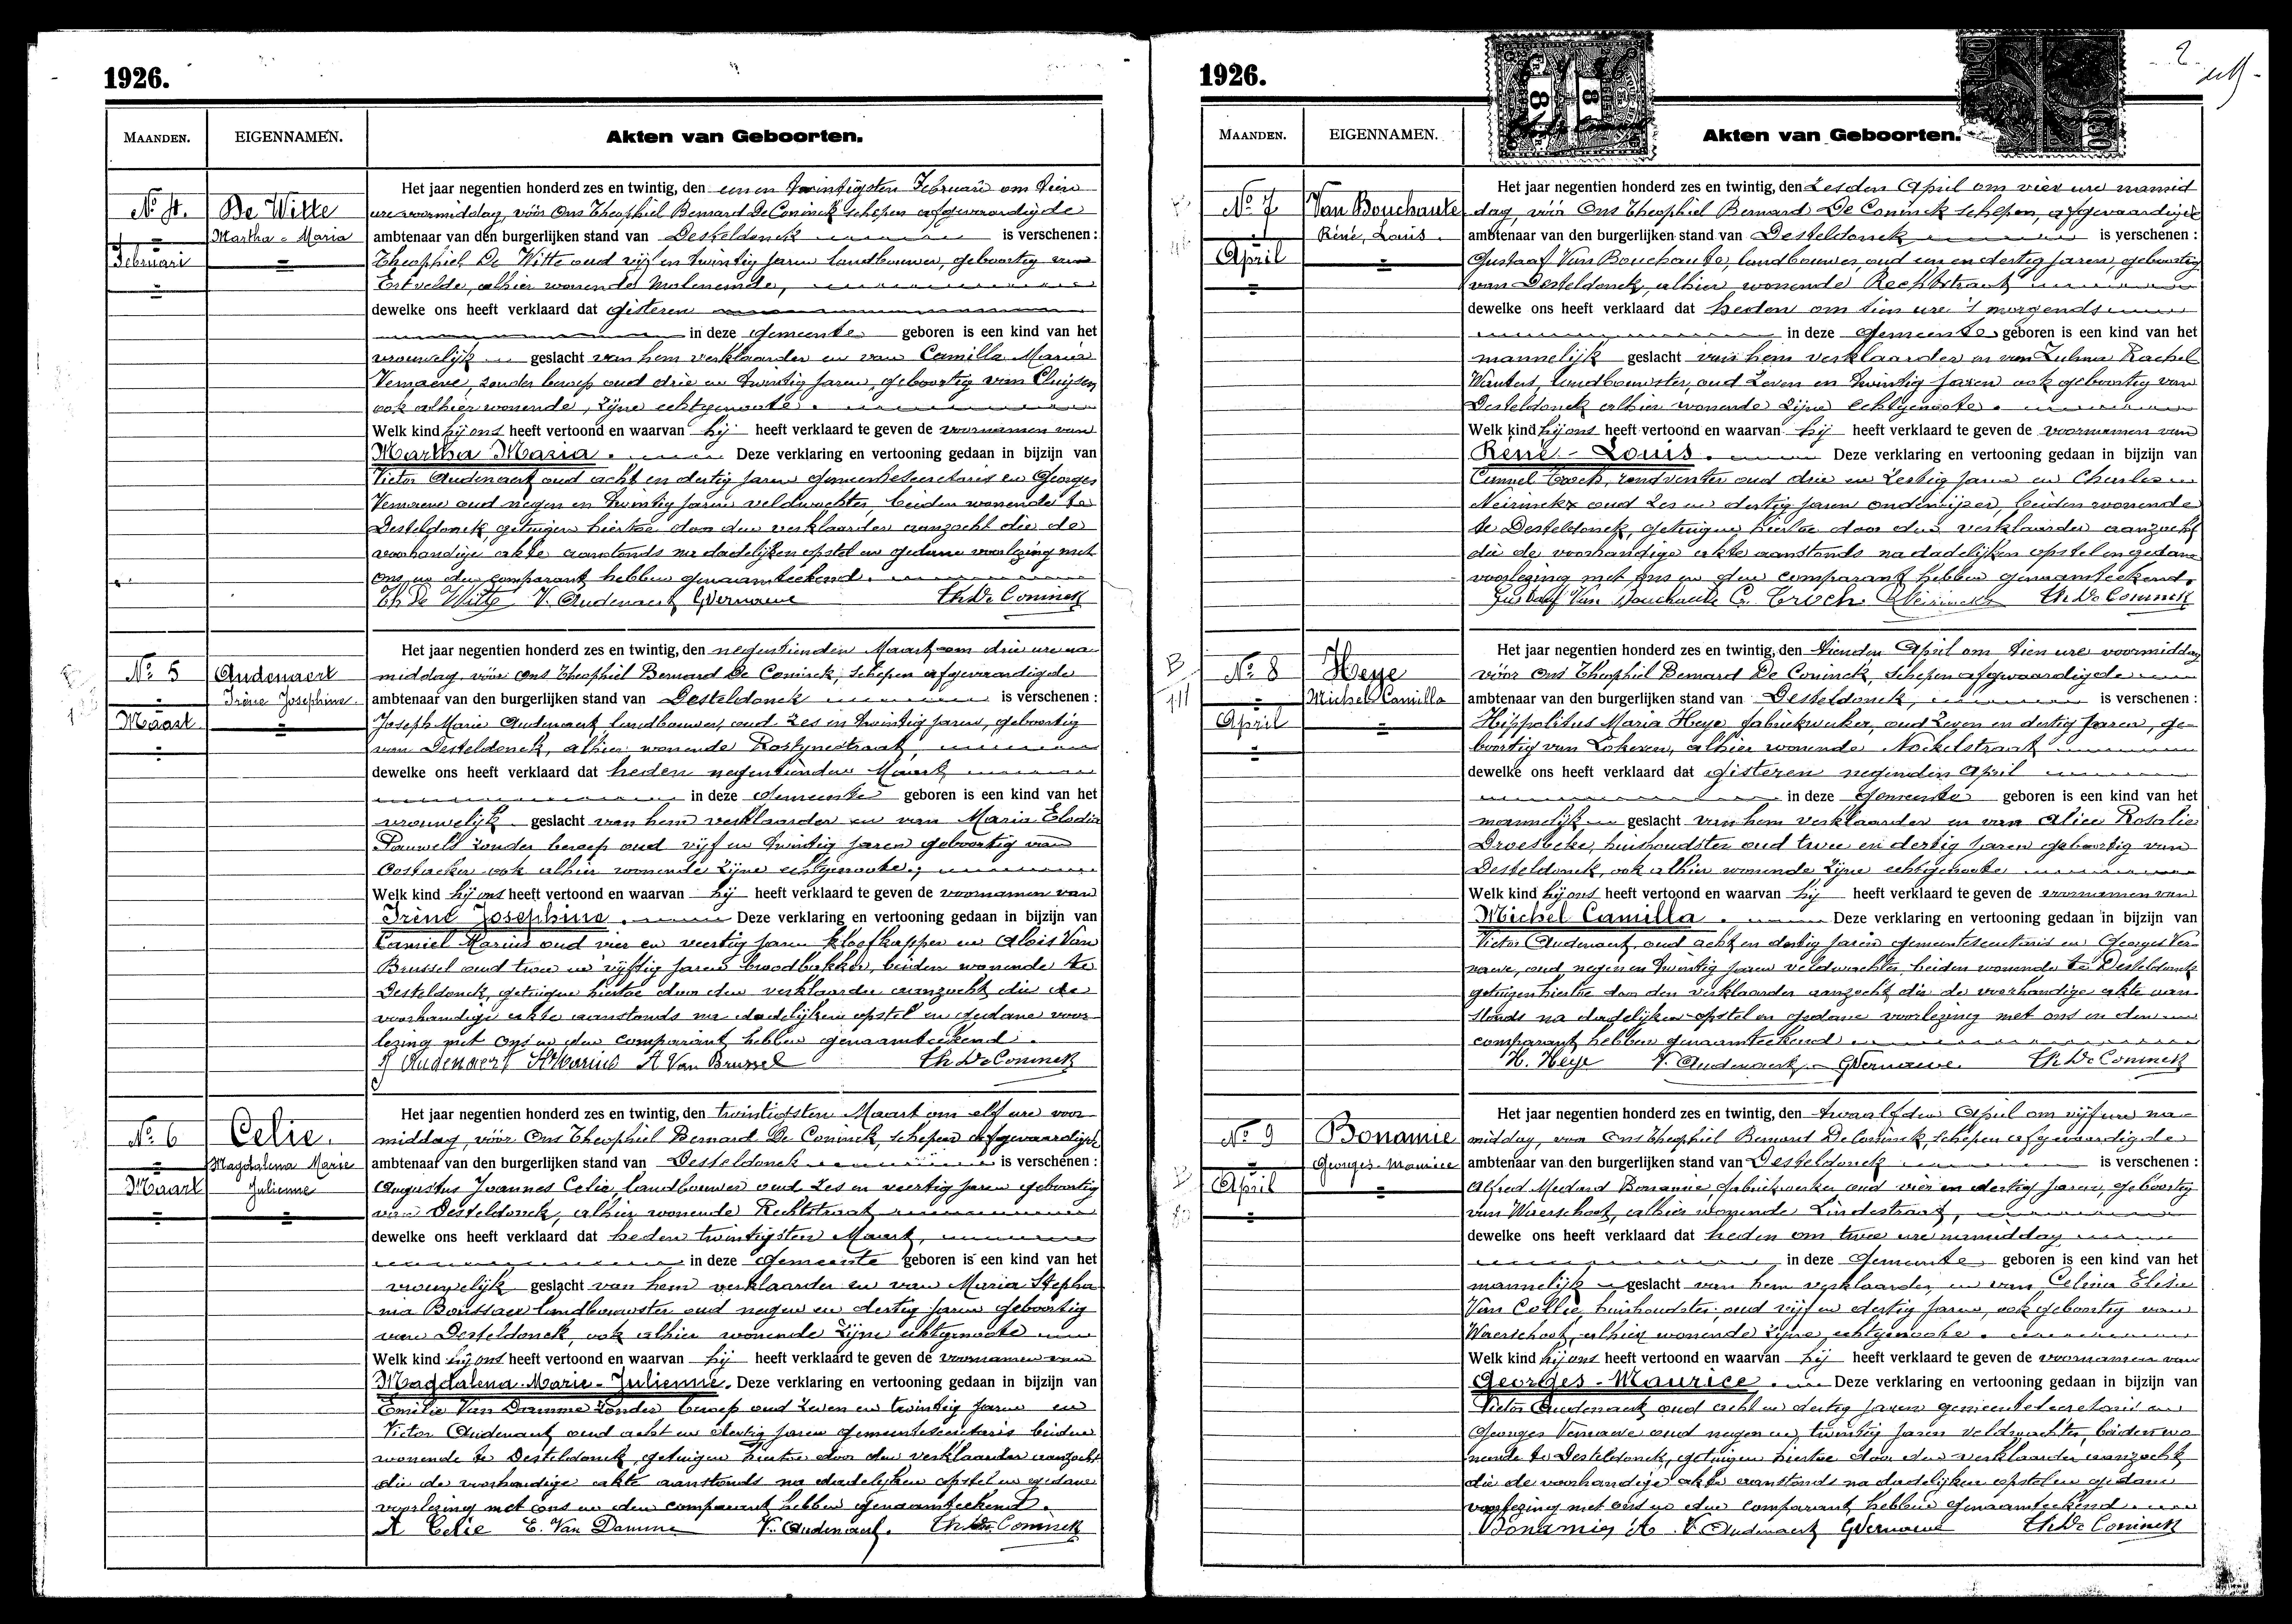 1926.
MAANDEN.
EIGENNAMEN.
Akten van Geboorten.
No 4.
De Witte
Martha-Maria
Februari
Het jaar negentien honderd zes en twintig, den eenen twintigsten Februari om tien
ure voormiddag, vóór Ons Theophiel Bernard De Coninck schepen afgevaardigde
ambtenaar van den burgerlijken stand van Desteldonck is verschenen :
Theophiel De Witte oud vijf en twintig jaren landbouwer, geboortig van
Ertvelde, alhier wonende Moleneinde,
dewelke ons heeft verklaard dat gisteren
in deze gemeente geboren is een kind van het
vrouwelijk geslacht van hem verklaarder en van Camilla Maria
Vernaeve, zonder beroep oud drie en twintig jaren, geboortig van Cluysen
ook alhier wonende, zijne echtgenoote.
Welk kind hij ons heeft vertoond en waarvan hij heeft verklaard te geven de voornamen van
Martha Maria. Deze verklaring en vertooning gedaan in bijzijn van
Victor Audenaert oud acht en dertig jaren gemeentesecretaris en Georges
Vernaeve oud negen en twintig jaren veldwachter, beiden wonende te
Desteldonck, getuigen hiertoe door den verklaarder aanzocht die de
voorhandige akte aanstonds na dadelijken opstel en gedane voorlezing met
ons en den comparant hebben genaamteekend.
Th De Witte V. Audenaert GVernaeve Th De Coninck
No 5
Audenaert
Irène Josephine
Maart
Het jaar negentien honderd zes en twintig, den negentienden Maart om drie ure na-
middag, vóór Ons Theophiel Bernard De Coninck, schepen afgevaardigde
ambtenaar van den burgerlijken stand van Desteldonck is verschenen :
Joseph Marie Audenaert landbouwer, oud zes en twintig jaren, geboortig
van Desteldonck, alhier wonende Rostynestraat,
dewelke ons heeft verklaard dat heden negentienden Maart
in deze gemeente geboren is een kind van het
vrouwelijk geslacht van hem verklaarder en van Maria Elodia
Pauwels zonder beroep oud vijf en twintig jaren geboortig van
Oostacker ook alhier wonende zijne echtgenoote;
Welk kind hij ons heeft vertoond en waarvan hij heeft verklaard te geven de voornamen van
Irène Josephine. Deze verklaring en vertooning gedaan in bijzijn van
Camiel Marius oud vier en veertig jaren kloefkapper en Aloïs Van
Brussel oud twee en vijftig jaren broodbakker, beiden wonende te
Desteldonck, getuigen hiertoe door den verklaarder aanzocht die de
voorhandige akte aanstonds na dadelijken opstel en gedane voor-
lezing met ons en den comparant hebben genaamteekend.
J Audenaert Marius A Van Brussel Th De Coninck
No 6
Celie.
Magdalena Marie
Julienne
Maart
Het jaar negentien honderd zes en twintig, den twintigsten Maart om elf ure voor-
middag, vóór Ons Theophiel Bernard De Coninck, schepen afgevaardigde
ambtenaar van den burgerlijken stand van Desteldonck is verschenen :
Augustus Joannes Celie landbouwer oud zes en veertig jaren geboortig
van Desteldonck, alhier wonende Rechtstraat
dewelke ons heeft verklaard dat heden twintigsten Maart,
in deze gemeente geboren is een kind van het
vrouwelijk geslacht van hem verklaarder en van Maria Stepha-
nia Boussaer landbouwster oud negen en dertig jaren geboortig
van Desteldonck, ook alhier wonende zijne echtgenoote
Welk kind hij ons heeft vertoond en waarvan hij heeft verklaard te geven de voornamen van
Magdalena-Marie-Julienne. Deze verklaring en vertooning gedaan in bijzijn van
Emilie Van Damme zonder beroep oud zeven en twintig jaren en
Victor Audenaert oud acht en dertig jaren gemeentesecretaris beiden
wonende te Desteldonck, getuigen hiertoe door den verklaarder aanzocht
die de voorhandige akte aanstonds na dadelijken opstel en gedane
voorlezing met ons en den comparant hebben genaamteekend.
A Celie E. Van Damme V. Audenaert. Th De Coninck
1926.
2
MAANDEN.
EIGENNAMEN.
Akten van Geboorten.
No 7
Van Bouchaute
Réné, Louis.
April
Het jaar negentien honderd zes en twintig, den zesden April om vier ure namid
dag, vóór Ons Theophiel Bernard De Coninck schepen, afgevaardigde
ambtenaar van den burgerlijken stand van Desteldonck is verschenen :
Gustaaf Van Bouchaute, landbouwer, oud een en dertig jaren, geboortig
van Desteldonck, alhier wonende Rechtstraat
dewelke ons heeft verklaard dat heden om tien ure 's morgends
in deze gemeente geboren is een kind van het
mannelijk geslacht van hem verklaarder en van Zulma Rachel
Wauters, landbouwster, oud zeven en twintig jaren ook geboortig van
Desteldonck alhier wonende zijne echtgenoote.
Welk kind hij ons heeft vertoond en waarvan hij heeft verklaard te geven de voornamen van
René-Louis. Deze verklaring en vertooning gedaan in bijzijn van
Croch, rondventer oud drie en zestig jaren en Charles
Neirinckx oud zes en dertig jaren onderwijzer, beiden wonende
te Desteldonck, getuigen hiertoe door den verklaarder aanzocht
die de voorhandige akte aanstonds na dadelijken opstel en gedane
voorlezing met ons en den comparant hebben genaamteekend.
Gustaaf Van Bouchaute C. Croch Neirinckx Th De Coninck
No 8
Heye
Michel Camilla
April
Het jaar negentien honderd zes en twintig, den tienden April om tien ure voormiddag
vóór Ons Theophiel Bernard De Coninck, schepen afgevaardigde
ambtenaar van den burgerlijken stand van Desteldonck, is verschenen :
Hippolitus Maria Heye fabriekwerker, oud zeven en dertig jaren, ge-
boortig van Lokeren, alhier wonende Nockelstraat
dewelke ons heeft verklaard dat gisteren negenden April
in deze gemeente geboren is een kind van het
mannelijk geslacht van hem verklaarder en van Alice Rosalie
Droesbeke, huishoudster oud twee en dertig jaren geboortig van
Desteldonck, ook alhier wonende zijne echtgenoote
Welk kind hij ons heeft vertoond en waarvan hij heeft verklaard te geven de voornamen van
Michel Camilla. Deze verklaring en vertooning gedaan in bijzijn van
Victor Audenaert, oud acht en dertig jaren gemeentesecretaris en Georges Ver-
naeve, oud negen en twintig jaren veldwachter beiden wonende te Desteldonck
getuigen hiertoe door den verklaarder aanzocht die de voorhandige akte aan-
stonds na dadelijken opstel en gedane voorlezing met ons en den
comparant hebben genaamteekend
H. Heye V. Audenaert GVernaeve. Th De Coninck
No 9
Bonamie
Georges-Maurice
April
Het jaar negentien honderd zes en twintig, den twaalfden April om vijf ure na-
middag, voor Ons Theophiel Bernard De Coninck, schepen afgevaardigde
ambtenaar van den burgerlijken stand van Desteldonck is verschenen :
Alfred Medard Bonamie, fabriekwerker oud vier en dertig jaren, geboortig
van Waerschoot, alhier wonende Lindestraat,
dewelke ons heeft verklaard dat heden om twee ure namiddag
in deze gemeente geboren is een kind van het
mannelijk geslacht van hem verklaarder, en van Celina Elisa
Van Collie, huishoudster oud vijf en dertig jaren, ook geboortig van
Waerschoot, alhier wonende zijne echtgenoote.
Welk kind hij ons heeft vertoond en waarvan hij heeft verklaard te geven de voornamen van
Georges-Maurice. Deze verklaring en vertooning gedaan in bijzijn van
Victor Audenaert oud acht en dertig jaren gemeentesecretaris en
Georges Vernaeve oud negen en twintig jaren veldwachter, beiden wo
nende te Desteldonck, getuigen hiertoe door den verklaarder aanzocht
die de voorhandige akte aanstonds na dadelijken opstel en gedane
voorlezing met ons en den comparant hebben genaamteekend
Bonamie A. V. Audenaert GVernaeve Th De Coninck